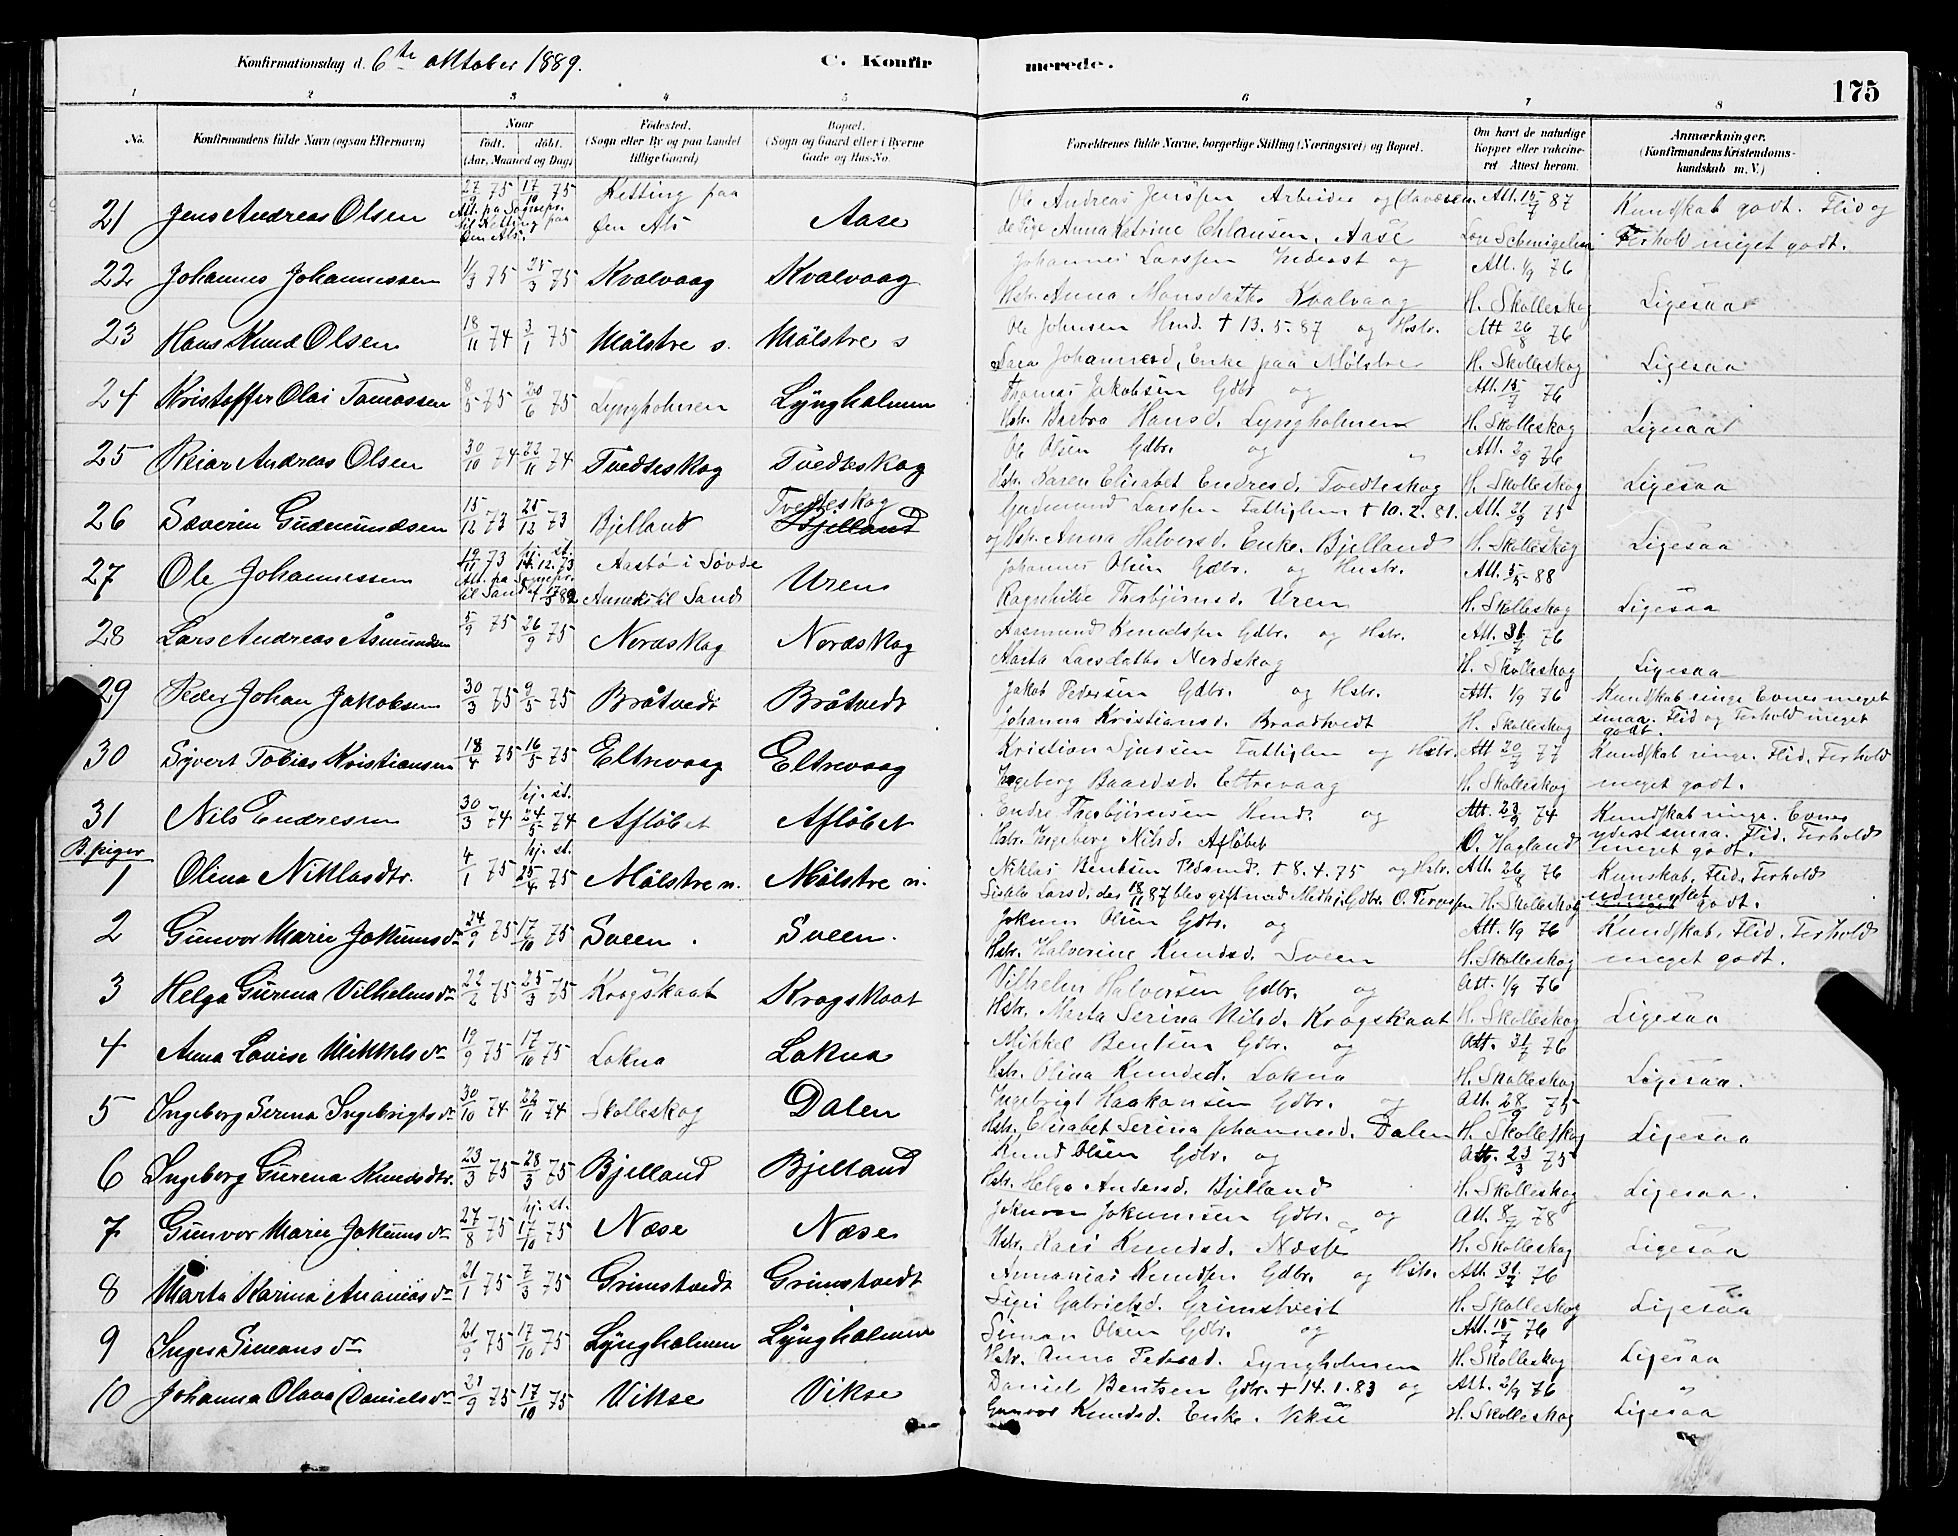 Konfirmationsdag d. 6te oktober 1889. C. Konfir merede. 175
1 2 3 4 5 6 7 8
No. Konfirmandens fulde Navn (ogsaa Efternavn) Naar født. døbt. (Aar, Maaned og Dag) Fødested. (Sogn eller By og paa Landet tillige Gaard) Bopæl. (Sogn og Gaard eller i Byerne Gade og Hus-No. Forældrenes fulde Navne, borgerlige Stilling (Næringsvei) og Bopæl. Om havt de naturlige Kopper eller vakcineret Attest herom. Anmærkninger. (Konfirmandens Kristendomskundskab m. V.)
21 Jens Andreas Olsen 27/9 75 17/10 75 Att. fra Sognepr. til Ketting paa Øen Als. Ketting paa Øen Als Aase Ole Andreas Jenssen Arbeider og
Pige Anna Katrine Chlausen, Aase Att. 15/7 87 Kundskab godt. Flid og Forhold meget godt.
22 Johannes Johannessen 1/3 75 25/3 75 Kvalvaag Kvalvaag Johannes Larssen Inderst og
Hstr. Anna Monsdatter Kvalvaag Att. 1/9 76 H. Skolleskog Ligesaa
23 Hans Knud Olsen 18/11 74 3/1 75 Mølstre s. Mølstre s Ole Johnsen Hmd. † 13.5.87 og Hstr.
Sara Johannesd, Enke paa Mølstre Att 26/8 76 H. Skolleskog Ligesaa
24 Kristoffer Olai Tomassen 8/5 75 20/6 75 Lyngholmen Lyngholmen Thomas Jakobsen Gdbr og
Hstr. Barbra Hansd. Lyngholmen Att. 15/7 76 H. Skolleskog Ligesaa
25 Reiar Andreas Olsen 30/10 74 22/11 74 Tvedteskog Tvedteskog Ole Olsen Gdbr. og
Hstr. Karen Elisabet Endresd. Tvedteskog Att. 2/9 76 H. Skolleskog Ligesaa
26 Severin Gudmundsen 15/12 73 25/12 73 Bjelland Tvedteskog Bjelland Gudmund Larssen Fattiglem † 10.2.81.
og Hstr. Anna Halversd. Enke. Bjelland Att. 21/9 75 H. Skolleskog Ligesaa
27 Ole Johannessen 19/11 73 hj. st. 14.12.73 Att. fra Sognepr. til Sand Aastø i Søvde Annex til Sand Uren Johannes Olsen Gdbr. og Hustr.
Ragnhilde Thorbjørnsd. Uren Att. 5/5 88 H. Skolleskog Ligesaa
28 Lars Andreas Åsmundsen 5/9 75 26/9 75 Nordskog Nordskog Aasmund Knudsen Gdbr. og Hstr.
Marta Larsdatter Nordskog Att. 31/7 76 H. Skolleskog Ligesaa
29 Peder Johan Jakobsen 30/3 75 9/5 75 Bråtvedt Bråtvedt Jakob Pedersen Gdbr. og Hstr.
Johanna Kristiansd. Braadtvedt Att 1/9 76 H. Skolleskog Kundskab ringe Evner meget smaa. Flid og Forhold meget godt.
30 Syvert Tobias Kristiansen 18/4 75 16/5 75 Eltrevaag Eltrevaag Kristian Sjursen Fattiglem og Hstr.
Ingeborg Baardsd. Eltrevaag Att 20/7 77 H. Skolleskog Kundskab ringe. Flid. Forhold meget godt.
31 Nils Endresen 30/3 74 hj. st. 24/5 74 Afløbet Afløbet Endre Thorbjørensen Hmd. og
Hstr. Ingeborg Nilsd. Afløbet Att. 23/9 74 O. Hagland Kundskab ringe. Evner yderst smaa. Flid. Forhold meget godt.
B. piger
1 Olina Niklasdtr. 4/1 75 hj. st. 25/4 75 Mølstre n. Mølstre n. Niklas Bentsen † 8.4.75 og Hstr.
Larsd. der 18/11 87 blev gift med Gdbr. O. Att. 26/8 76 H. Skolleskog Kunskab, Flid, Forhold udmerket godt.
2 Gunvor Marie Jokumsdr 24/9 75 17/10 75 Sveen. Sveen. Jokum Olsen Gdbr. og
Hstr. Halverine Knudsd. Sveen Att. 1/9 76 H. Skolleskog Kundskab, Flid, Forhold meget godt.
3 Helga Gurena Vilhelmsdr 22/2 75 25/3 75 Krogskaat Krogskaat Vilhelm Halversen Gdbr. og
Hstr. Marta Serina Nilsd. Krogskaat Att. 1/9 76 H. Skolleskog Ligesaa
4 Anna Lovise Mikkelsdr 19/9 75 17/10 75 Lokna Lokna Mikkel Bentsen Gdbr. og
Hstr. Olina Knudsd. Lokna Att. 31/7 76 H. Skolleskog Ligesaa.
5 Ingeborg Serina Ingebrigtsdr 30/10 74 22/11 74 Skolleskog Dalen Ingebrigt Haakonsen Gdbr. og
Hstr. Elisabet Serina Johannesd. Dalen Att. 28/9 75 H. Skolleskog Ligesaa
6 Ingeborg Gurena Knudsdtr. 23/3 75 28/3 75 Bjelland Bjelland Knud Olsen Gdbr. og
Hstr. Helga Andersd. Bjelland Att. 23/3 75 H. Skolleskog Ligesaa.
7 Gunvor Marie Jokumsdr 27/8 75 hj. st. 17/10 75 Næse Næse Jokum Jokumsen Gdbr. og
Hstr. Kari Knudsd. Næsse Att. 8/7 78 H. Skolleskog Ligesaa
8 Marta Karina Ananiasdr 21/1 75 7/3 75 Grimstvedt Grimstvedt Annanias Knudsen Gdbr. og Hstr.
Siri Gabrielsd. Grimstveit Att. 31/7 76 H. Skolleskog Ligesaa
9 Inger Simonsdr 21/9 75 17/10 75 Lyngholmen Lyngholmen Simon Olsen Gdbr. og
Hstr. Anna Pedersd. Lyngholmen Att. 15/7 76 H. Skolleskog Ligesaa
10 Johanna Olava Danielsdr 21/9 75 17/10 75 Vikse Vikse Daniel Bentsen Gdbr. † 14.1.83 og
Gunvor Knudsd. Enke. Vikse Att. 2/9 76 H. Skolleskog Ligesaa